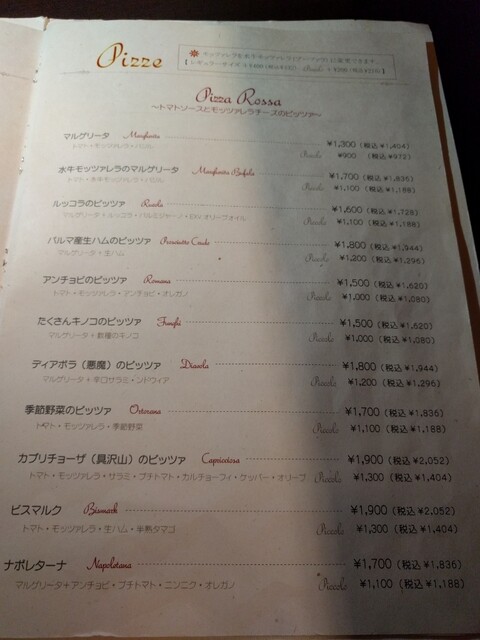 Pizze
※モッツァレラを水牛モッツァレラ(ブッファラ)に変更できます。
【レギュラーサイズ + ¥400 (税込¥432) Piccolo + ¥200 (税込¥216)】
Pizza Rossa
～トマトソースとモッツァレラチーズのピッツァ～
マルゲリータ Margherita ¥1,300 (税込 ¥1,404)
トマト・モッツァレラ・バジル Piccolo ¥900 (税込 ¥972)
水牛モッツァレラのマルゲリータ Margherita Bufala ¥1,700 (税込 ¥1,836)
トマト・水牛モッツァレラ・バジル Piccolo ¥1,100 (税込 ¥1,188)
ルッコラのピッツァ Rucola ¥1,600 (税込 ¥1,728)
マルゲリータ + ルッコラ・パルミジャーノ・EXVオリーヴオイル Piccolo ¥1,100 (税込 ¥1,188)
パルマ産生ハムのピッツァ Prosciutto Crudo ¥1,800 (税込 ¥1,944)
マルゲリータ + 生ハム Piccolo ¥1,200 (税込 ¥1,296)
アンチョビのピッツァ Romana ¥1,500 (税込 ¥1,620)
トマト・モッツァレラ・アンチョビ・オレガノ Piccolo ¥1,000 (税込 ¥1,080)
たくさんキノコのピッツァ Funghi ¥1,500 (税込 ¥1,620)
マルゲリータ + 数種のキノコ Piccolo ¥1,000 (税込 ¥1,080)
ディアボラ（悪魔）のピッツァ Diavola ¥1,800 (税込 ¥1,944)
マルゲリータ + 辛口サラミ・ンドウィア Piccolo ¥1,200 (税込 ¥1,296)
季節野菜のピッツァ Ortorana ¥1,700 (税込 ¥1,836)
トマト・モッツァレラ・季節野菜 Piccolo ¥1,100 (税込 ¥1,188)
カプリチョーザ（具沢山）のピッツァ Capricciosa ¥1,900 (税込 ¥2,052)
トマト・モッツァレラ・サラミ・プチトマト・カルチョーフィ・ケッパー・オリーブ Piccolo ¥1,300 (税込 ¥1,404)
ビスマルク Bismark ¥1,900 (税込 ¥2,052)
トマト・モッツァレラ・生ハム・半熟タマゴ Piccolo ¥1,300 (税込 ¥1,404)
ナポレターナ Napoletana ¥1,700 (税込 ¥1,836)
マルゲリータ+アンチョビ・プチトマト・ニンニク・オレガノ Piccolo ¥1,100 (税込 ¥1,188)